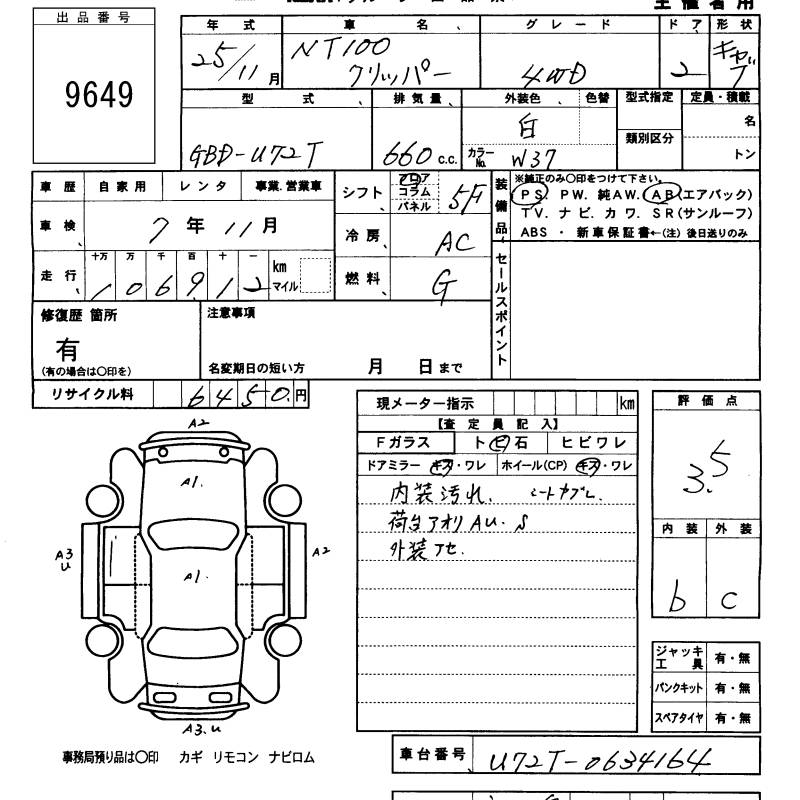 出品番号
9649
年式 車名 グレード ドア 形状
25/11月 NT100 クリッパー 4WD 2 キャブ
型式 排気量 外装色 色替 型式指定 定員・積載
GBD-U72T 660 c.c. 白 類別区分 名
カラーNo. W37 トン
車歴 自家用 レンタ 事業.営業車
シフト フロア コラム パネル 5F
装備品 ※純正のみ〇印をつけて下さい。
PS. PW. 純AW. AB(エアバック)
TV. ナビ. カワ. SR(サンルーフ)
ABS ・ 新車保証書←(注) 後日送りのみ
車検 7年 11月
冷房 AC
走行 十万 万 千 百 十 一
1 0 6 9 1 2 km マイル
燃料 G
セールスポイント
修復歴 箇所
有
(有の場合は〇印を)
注意事項
名変期日の短い方 月 日まで
リサイクル料 6450.円
現メーター指示 km
【査定員記入】
Fガラス ト ビ 石 ヒビワレ
ドアミラー キズ・ワレ ホイール(CP) キズ・ワレ
内装汚れ. シートヤブレ.
荷台アオリ AU. S
外装アセ.
評価点
3.5
内装 外装
b c
A2
A1.
A3
U
A2
A1.
A3.U
ジャッキ工具 有・無
パンクキット 有・無
スペアタイヤ 有・無
事務局預り品は〇印 カギ リモコン ナビロム
車台番号 U72T-0634164